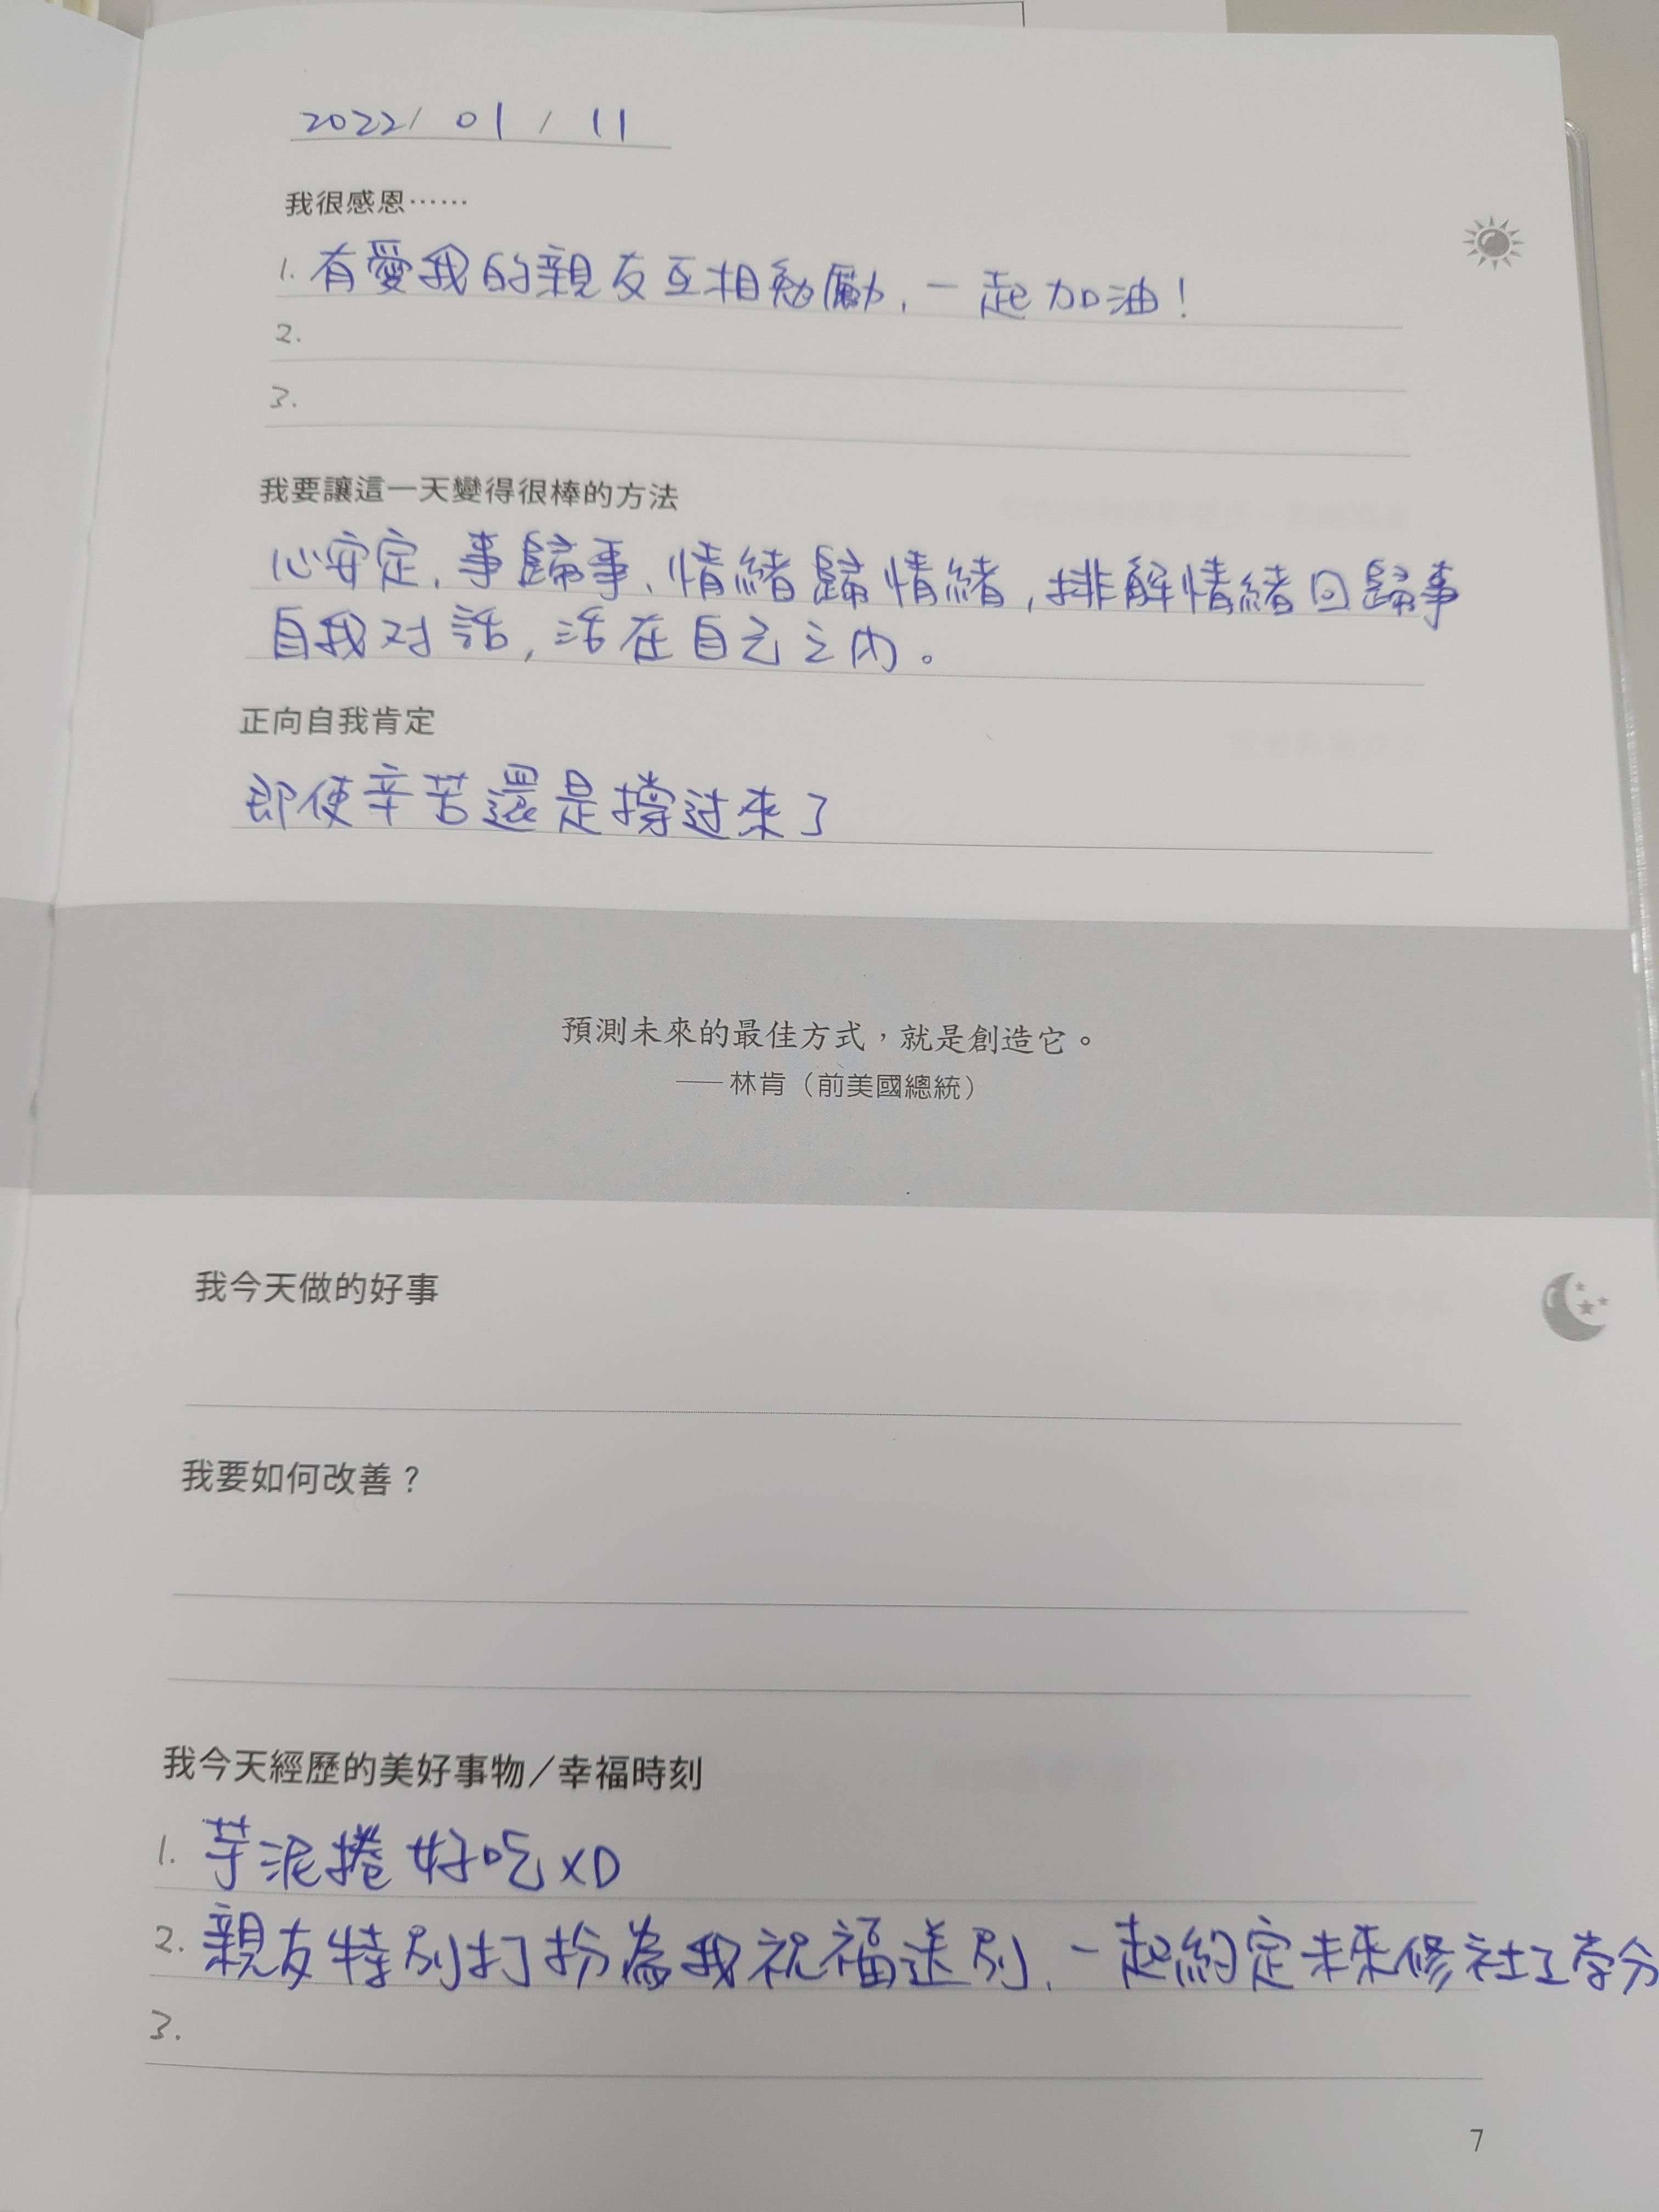 2022/ 01 / 11
我很感恩……
1. 有愛我的親友互相勉勵、一起加油！
2.
3.
我要讓這一天變得很棒的方法
心安定、事歸事、情緒歸情緒，排解情緒回歸事
自我对話，活在自己之內。
正向自我肯定
即使辛苦還是撐过來了
預測未來的最佳方式，就是創造它。
——林肯（前美國總統）
我今天做的好事
我要如何改善？
我今天經歷的美好事物／幸福時刻
1. 芋泥捲好吃XD
2. 親友特別打扮為我祝福送別、一起約定未來修社工学分
3.
7